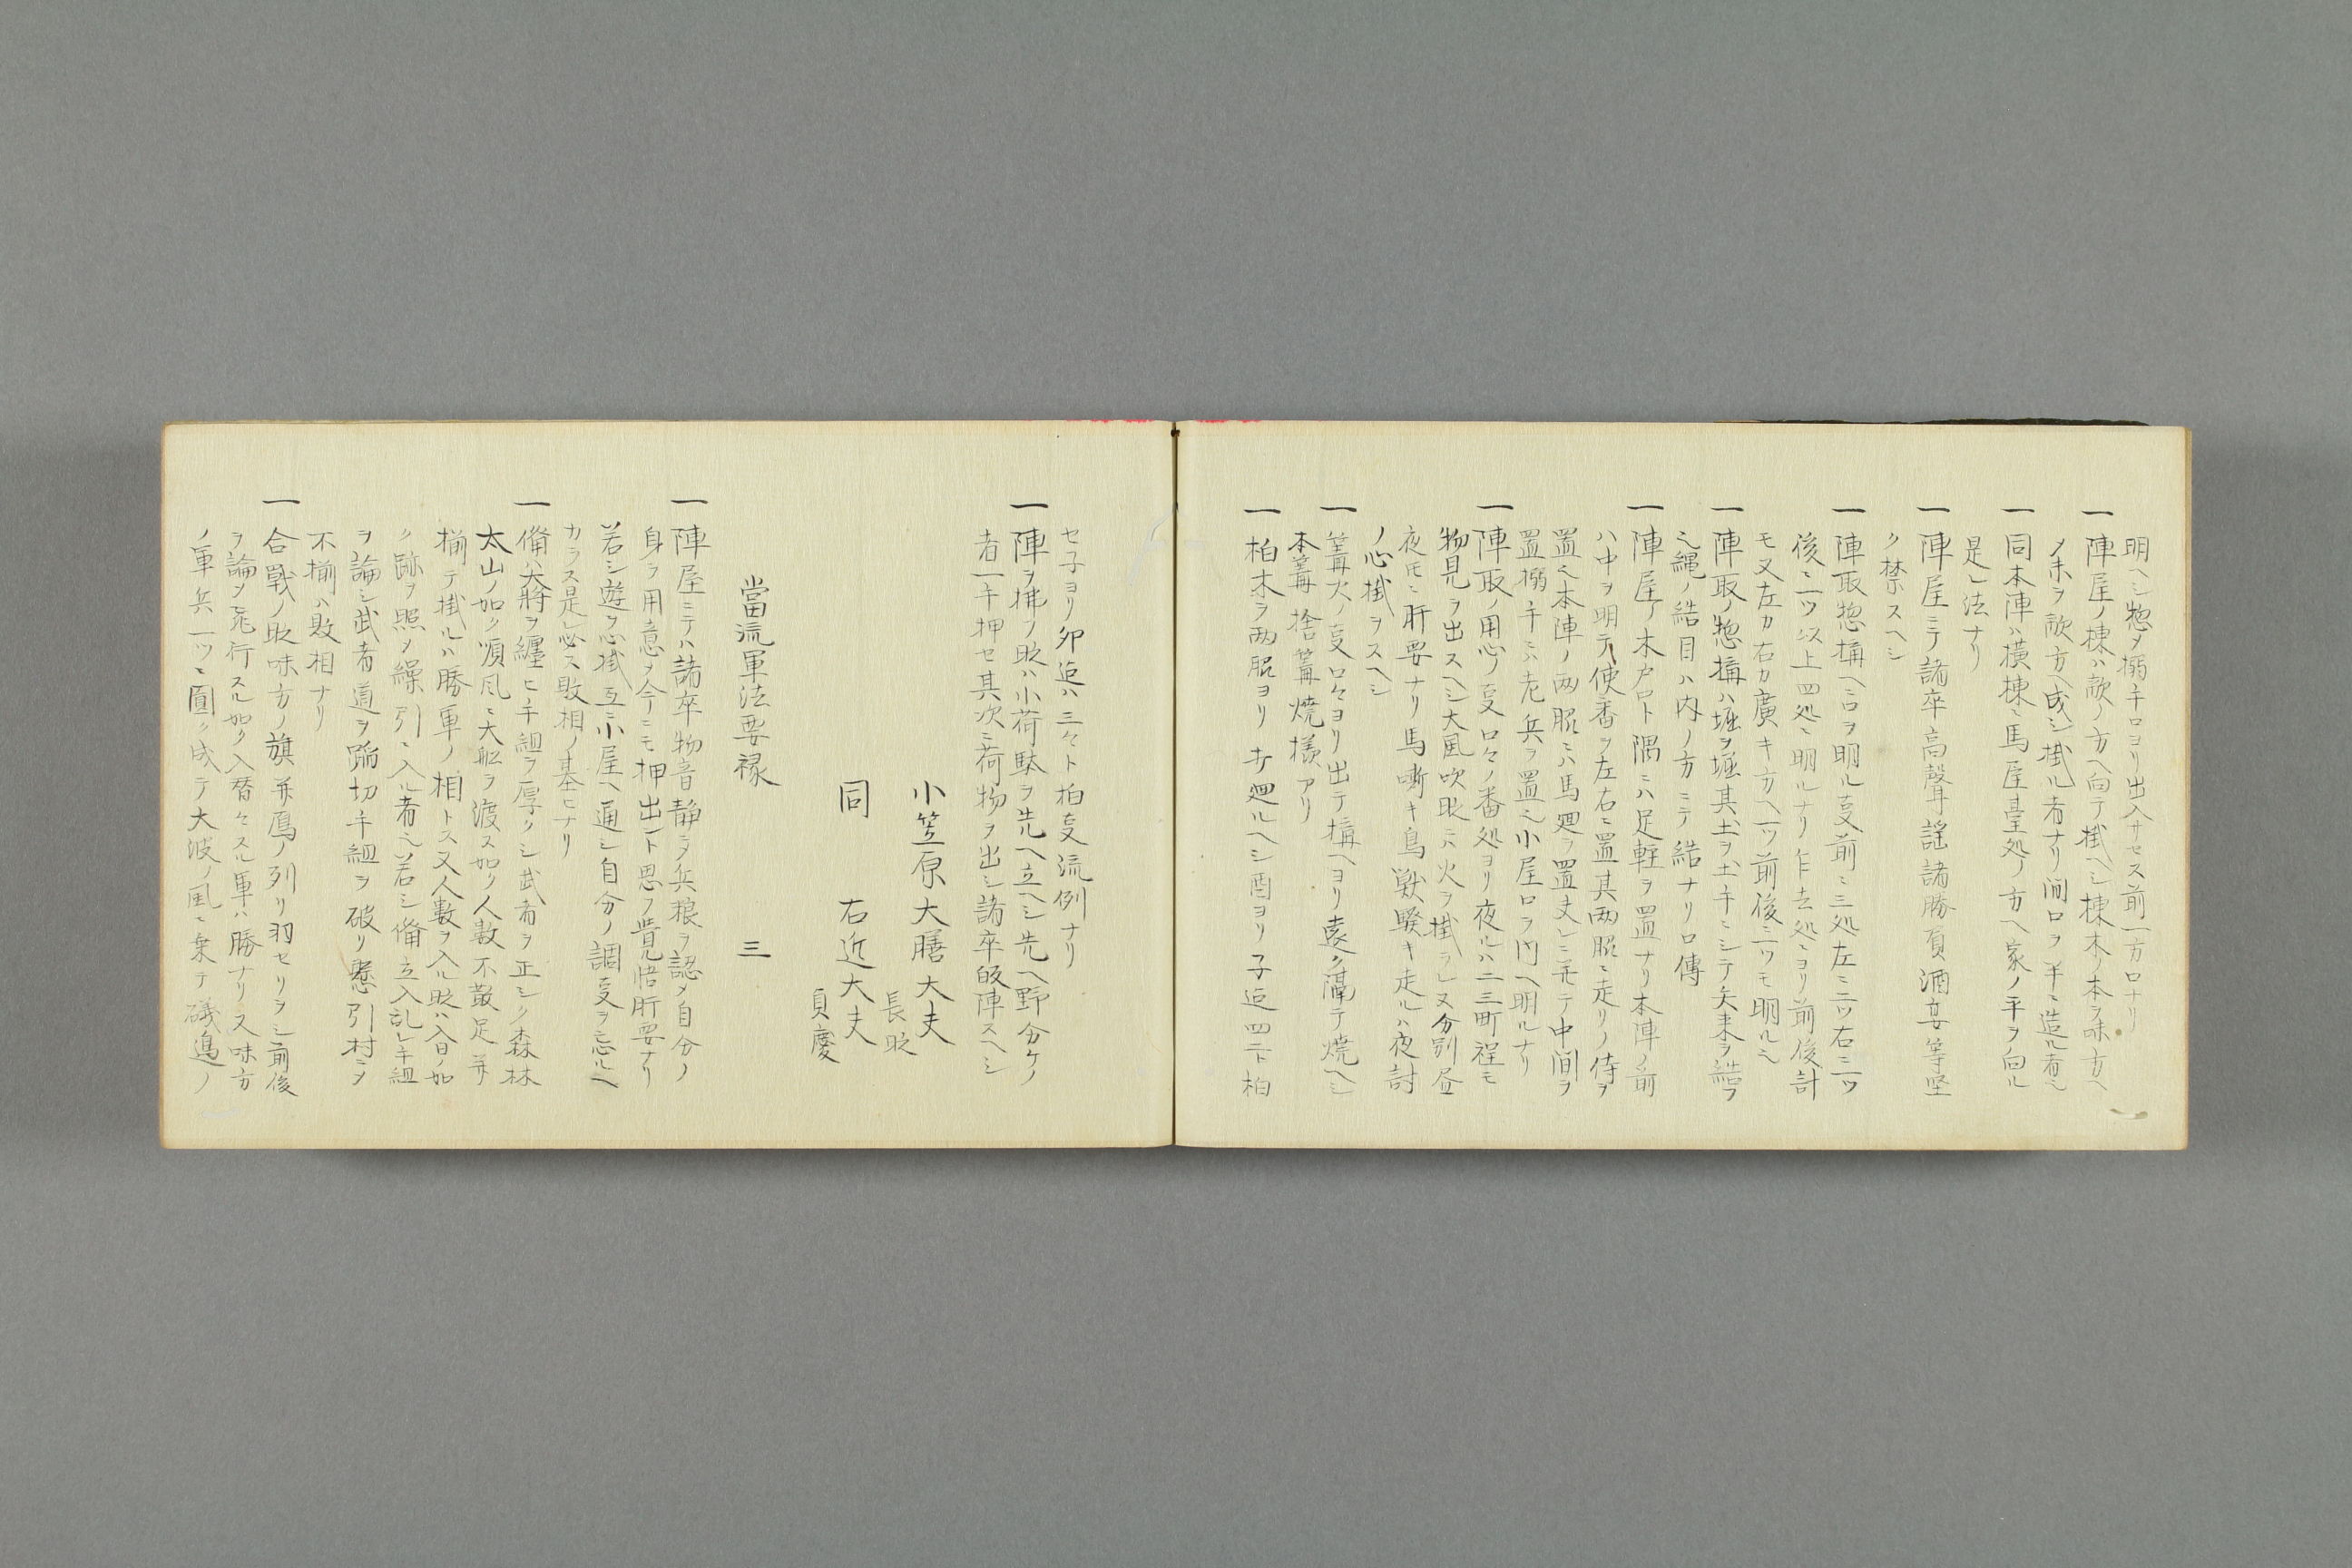 明ヘシ惣〆搦手口ヨリ出入サセス前一方口ナリ
一陣屋ノ棟ハ敵ノ方ヘ向テ掛ヘシ棟木ノ本ヲ味方ヘ
〆末ヲ敵方ヘ成シ掛ル者ナリ間口ヲ半ニ造ル者也
一同本陣ハ横棟ニ馬屋臺処ノ方ヘ家ノ平ヲ向ル
是レ法ナリ
一陣屋ニテ諸卒高聲謡諸勝負酒宴等堅
ク禁スヘシ
一陣取惣搆ヘ口ヲ明ル叓前ニ三処左ニ二ツ右ニ二ツ
後ニ一ツ以上四処ニ明ルナリ乍去処ニヨリ前後計
モ又左カ右カ廣キ方ヘ一ツ前後ニ一ツモ明ル也
一陣取ノ惣搆ハ堀ヲ堀其土ヲ土手ニシテ矢来ヲ結フ
也縄ノ結目ハ内ノ方ニテ結ナリ口傳
一陣屋ノ木戸口ト隅ニハ足軽ヲ置ナリ本陣ノ前
ハ中ヲ明テ使番ヲ左右ニ置其両脇ニ走リノ侍ヲ
置也本陣ノ両脇ニハ馬廻ヲ置丈レニ並テ中間ヲ
置搦手ニハ老兵ヲ置也小屋口ヲ内ヘ明ルナリ
一陣取ノ用心ノ叓口々ノ番処ヨリ夜ルハ二三町程モ
物見ヲ出スヘシ大風吹時ニハ火ヲ掛ラレ又分別昼
夜モニ肝要ナリ馬嘶キ鳥獣騒キ走ルハ夜討
ノ心掛ヲスヘシ
一篝火ノ叓口々ヨリ出テ搆ヘヨリ遠ク隔テ焼ヘシ
本篝捨篝焼様アリ
一柏木ヲ両脇ヨリ打廻ルヘシ酉ヨリ子迠四ニト柏
セ子ヨリ卯迠ハ三々ト柏叓流例ナリ
一陣ヲ拂フ時ハ小荷駄ヲ先ヘ立ヘシ先ヘ野分ケノ
者一手押セ其次ニ荷物ヲ出シ諸卒皈陣スヘシ
小笠原大膳大夫
長時
同　右近大夫
貞慶
當流軍法要禄　三
一陣屋ニテハ諸卒物音静ニ〆兵粮ヲ認メ自分ノ
身ヲ用意〆今ニモ押出ント思フ覚悟肝要ナリ
若シ遊ヲ心掛互ニ小屋ヘ通シ自分ノ調叓ヲ忘ルヘ
カラス是レ必ス敗相ノ基ヒナリ
一備ハ大將ヲ纏ヒ手組ヲ厚クシ武者ヲ正シク森林
太山ノ如ク順風ニ大舩ヲ渡ス如ク人數不散足並
揃テ掛ルハ勝軍ノ相トス又人數ヲ入ル時ハ入日ノ如
ク跡ヲ照〆繰引ニ入ル者也若シ備立入乱レ手組
ヲ論シ武者道ヲ踏切手組ヲ破リ懸引村ニ〆
不揃ハ敗相ナリ
一合戰ノ時味方ノ旗並鳫ノ列リ羽セリヲシ前後
ヲ論〆飛行スル如ク入替々スル軍ハ勝ナリ又味方
ノ軍兵一ツニ圓ク成テ大波ノ風ニ乗テ磯邊ノ